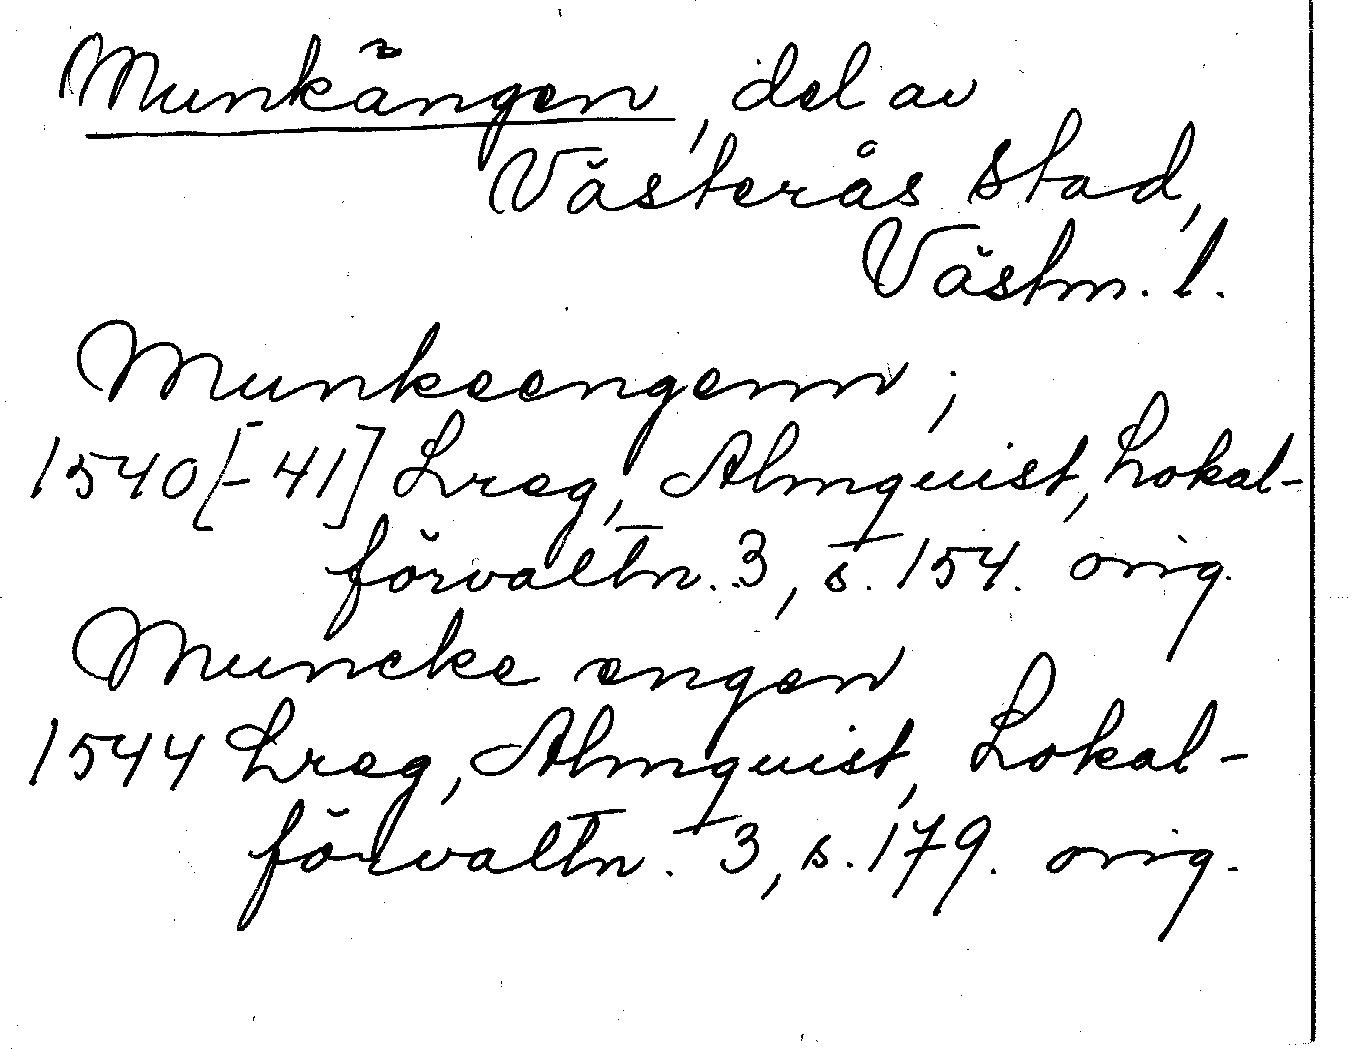 Munkängen, del av
Västerås stad,
Västm. l.
Munkeengenn;
1540[-41] Lreg, Almquist, Lokal-
förvaltn. 3, s. 154. orig.
Muncke engen
1544 Lreg, Almquist, Lokal-
förvaltn. 3, s. 179. orig.